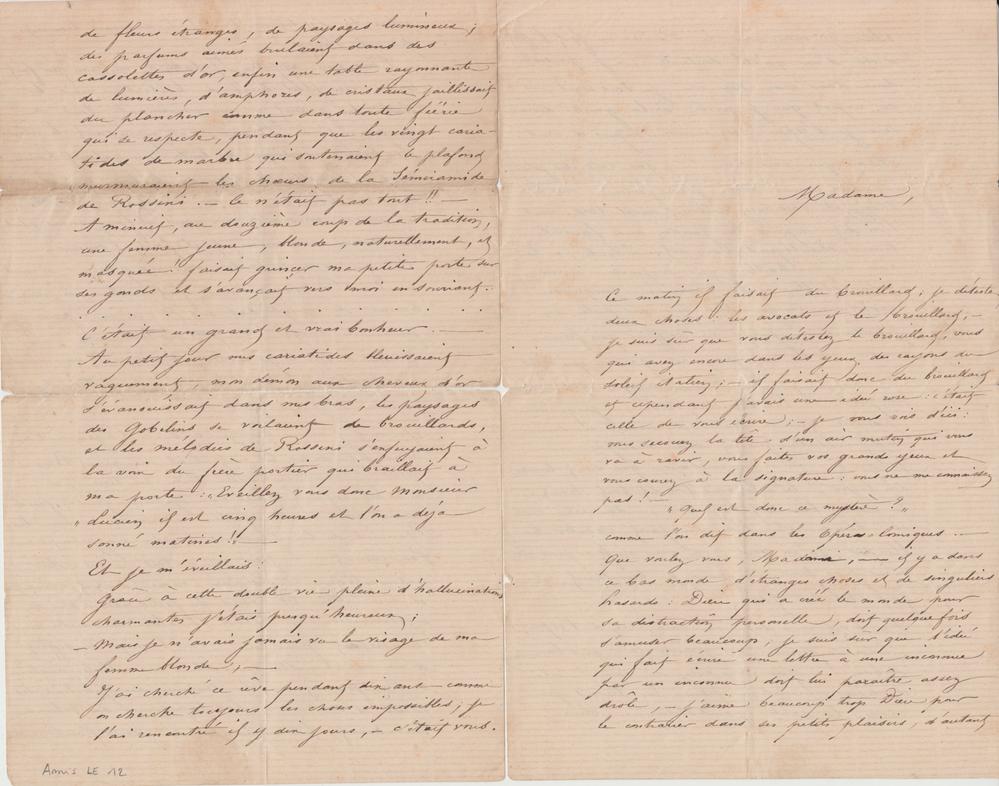 de fleurs étranges, de paysages lumineux ;
des parfums aimés brulaient dans des
cassolettes d'or, enfin une table rayonnante
de lumières, d'amphores, de cristaux jaillissait
du plancher comme dans toute féérie
qui se respecte, pendant que les vingt caria-
tides de marbre qui soutenaient le plafond
murmuraient les chœurs de la Sémiramide
de Rossini. — Ce n'était pas tout !! —
A minuit, au douzième coup de la tradition,
une femme jeune, blonde, naturellement, et
masquée ! faisait grincer ma petite porte sur
ses gonds et s'avançait vers moi en souriant.
. . . . . . . . . . . .
C'était un grand et vrai bonheur. —
Au petit jour mes cariatides bleuissaient
vaguement, mon démon aux cheveux d'or
s'évanouissait dans mes bras, les paysages
des Gobelins se voilaient de brouillards,
et les mélodies de Rossini s'enfuyaient à
la voix du frère portier qui braillait à
ma porte : „ Eveillez vous donc Monsieur
„ Lucien il est cinq heures et l'on a deja
sonné matines ! „ —
Et je m'éveillais :
Grâce à cette double vie pleine d'hallucinations
charmantes j'étais presqu'heureux ;
— Mais je n'avais jamais vu le visage de ma
femme blonde ; —
J'ai cherché ce rêve pendant dix ans — comme
on cherche toujours les choses impossibles ; je
l'ai rencontré il y dix jours, — c'était vous.
Amis LE 12
Madame,
Ce matin il faisait du brouillard ; je déteste
deux choses : les avocats et le brouillard, —
je suis sûr que vous détestez le brouillard, vous
qui avez encore dans les yeux des rayons du
soleil italien ; — il faisait donc du brouillard
et cependant j'avais une idée rose : c'était
celle de vous écrire ; — je vous vois d'ici :
vous secouez la tête d'un air mutin qui vous
va à ravir, vous faites vos grands yeux et
vous courez à la signature : vous ne me connaissez
pas ! —
„ Quel est donc ce mystère ? „
comme l'on dit dans les Opéras-Comiques. —
Que voulez vous, Madame, — il y a dans
ce bas monde d'étranges choses et de singuliers
hasards : Dieu qui a créé le monde pour
sa distraction personnelle, doit quelquefois
s'amuser beaucoup ; je suis sûr que l'idée
qui fait écrire une lettre à une inconnue
par un inconnu doit lui paraître assez
drôle, — j'aime beaucoup trop Dieu pour
le contrarier dans ses petits plaisirs, d'autant